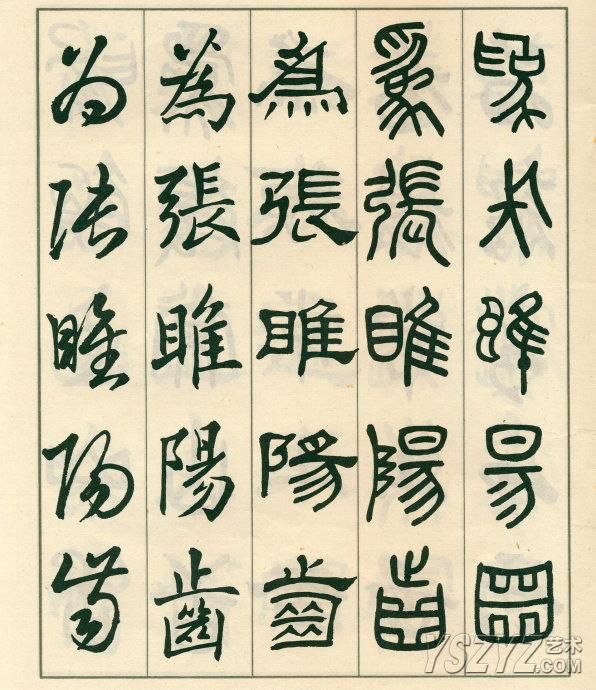 為張睢陽齒
為張睢陽齒
為張睢陽齒
為張睢陽齒
為張睢陽齒
YSZYZ艺术